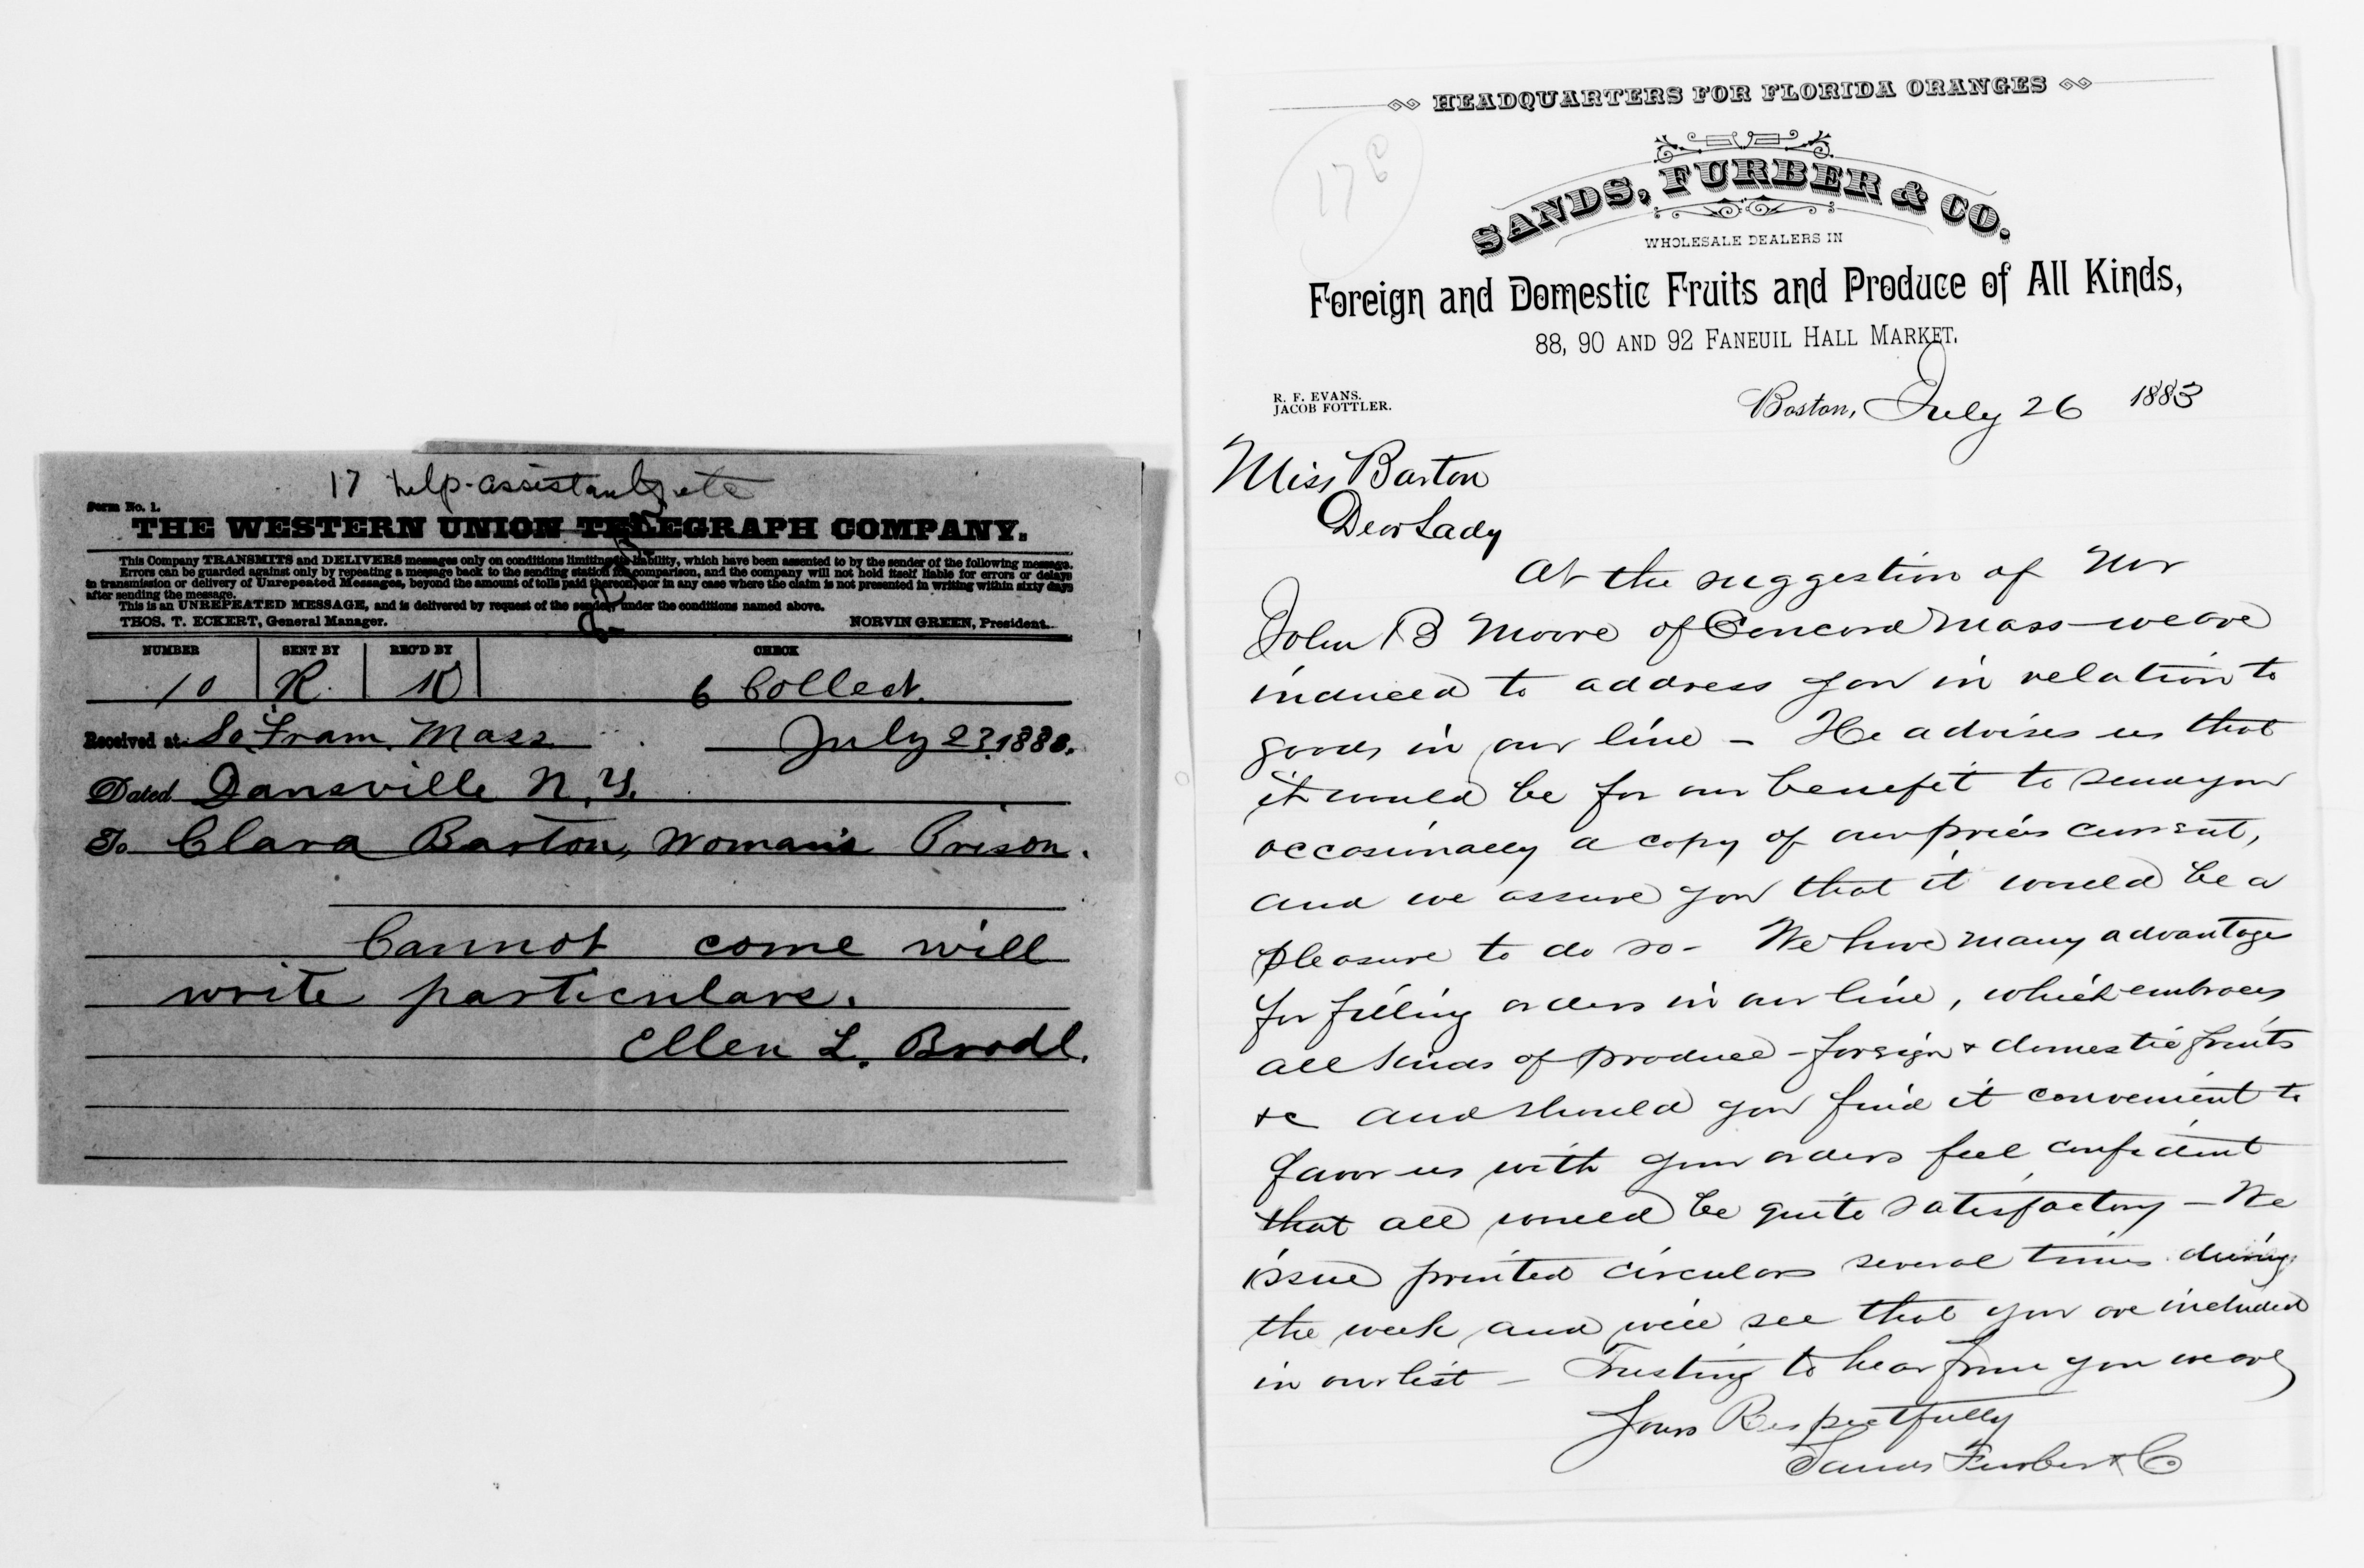 17 help-assistants, etc
Form No. 1.
THE WESTERN UNION TELEGRAPH COMPANY.
This Company TRANSMITS and DELIVERS messages only on conditions limiting its liability, which have been assented to by the sender of the following message.
Errors can be guarded against only by repeating a message back to the sending station for comparison, and the company will not hold itself liable for errors or delays
in transmission or delivery of Unrepeated Messages, beyond the amount of tolls paid thereon, nor in any case where the claim is not presented in writing within sixty days
after sending the message.
This is an UNREPEATED MESSAGE, and is delivered by request of the sender, under the conditions named above.
THOS. T. ECKERT, General Manager. NORVIN GREEN, President.
NUMBER SENT BY REC'D BY CHECK
10 R. 6 Collect.
Received at So. Fram. Mass July 23, 188
Dated Dansville N. Y.
To Clara Barton, Woman's Prison.
Cannot come will
write particulars.
Ellen L. Brodl.
HEADQUARTERS FOR FLORIDA ORANGES
SANDS, FURBER & CO.
WHOLESALE DEALERS IN
Foreign and Domestic Fruits and Produce of All Kinds,
88, 90 AND 92 FANEUIL HALL MARKET.
R. F. EVANS.
JACOB FOTTLER.
Boston, July 26 1883
Miss Barton
Dear Lady
At the suggestion of Mr
John B Moore of Concord Mass we are
induced to address you in relation to
goods in our line - He advises us that
it would be for our benefit to send you
occasionally a copy of our prices current,
and we assure you that it would be a
pleasure to do so - We have many advantages
for filling orders in our line, which embraces
all kinds of produce - foreign & domestic fruits
&c and should you find it convenient to
favor us with your orders feel confident
that all would be quite satisfactory - We
issue printed circulars several times during
the week and will see that you are included
in our list - Trusting to hear from you we are
Yours Respectfully
Sands Furber & Co